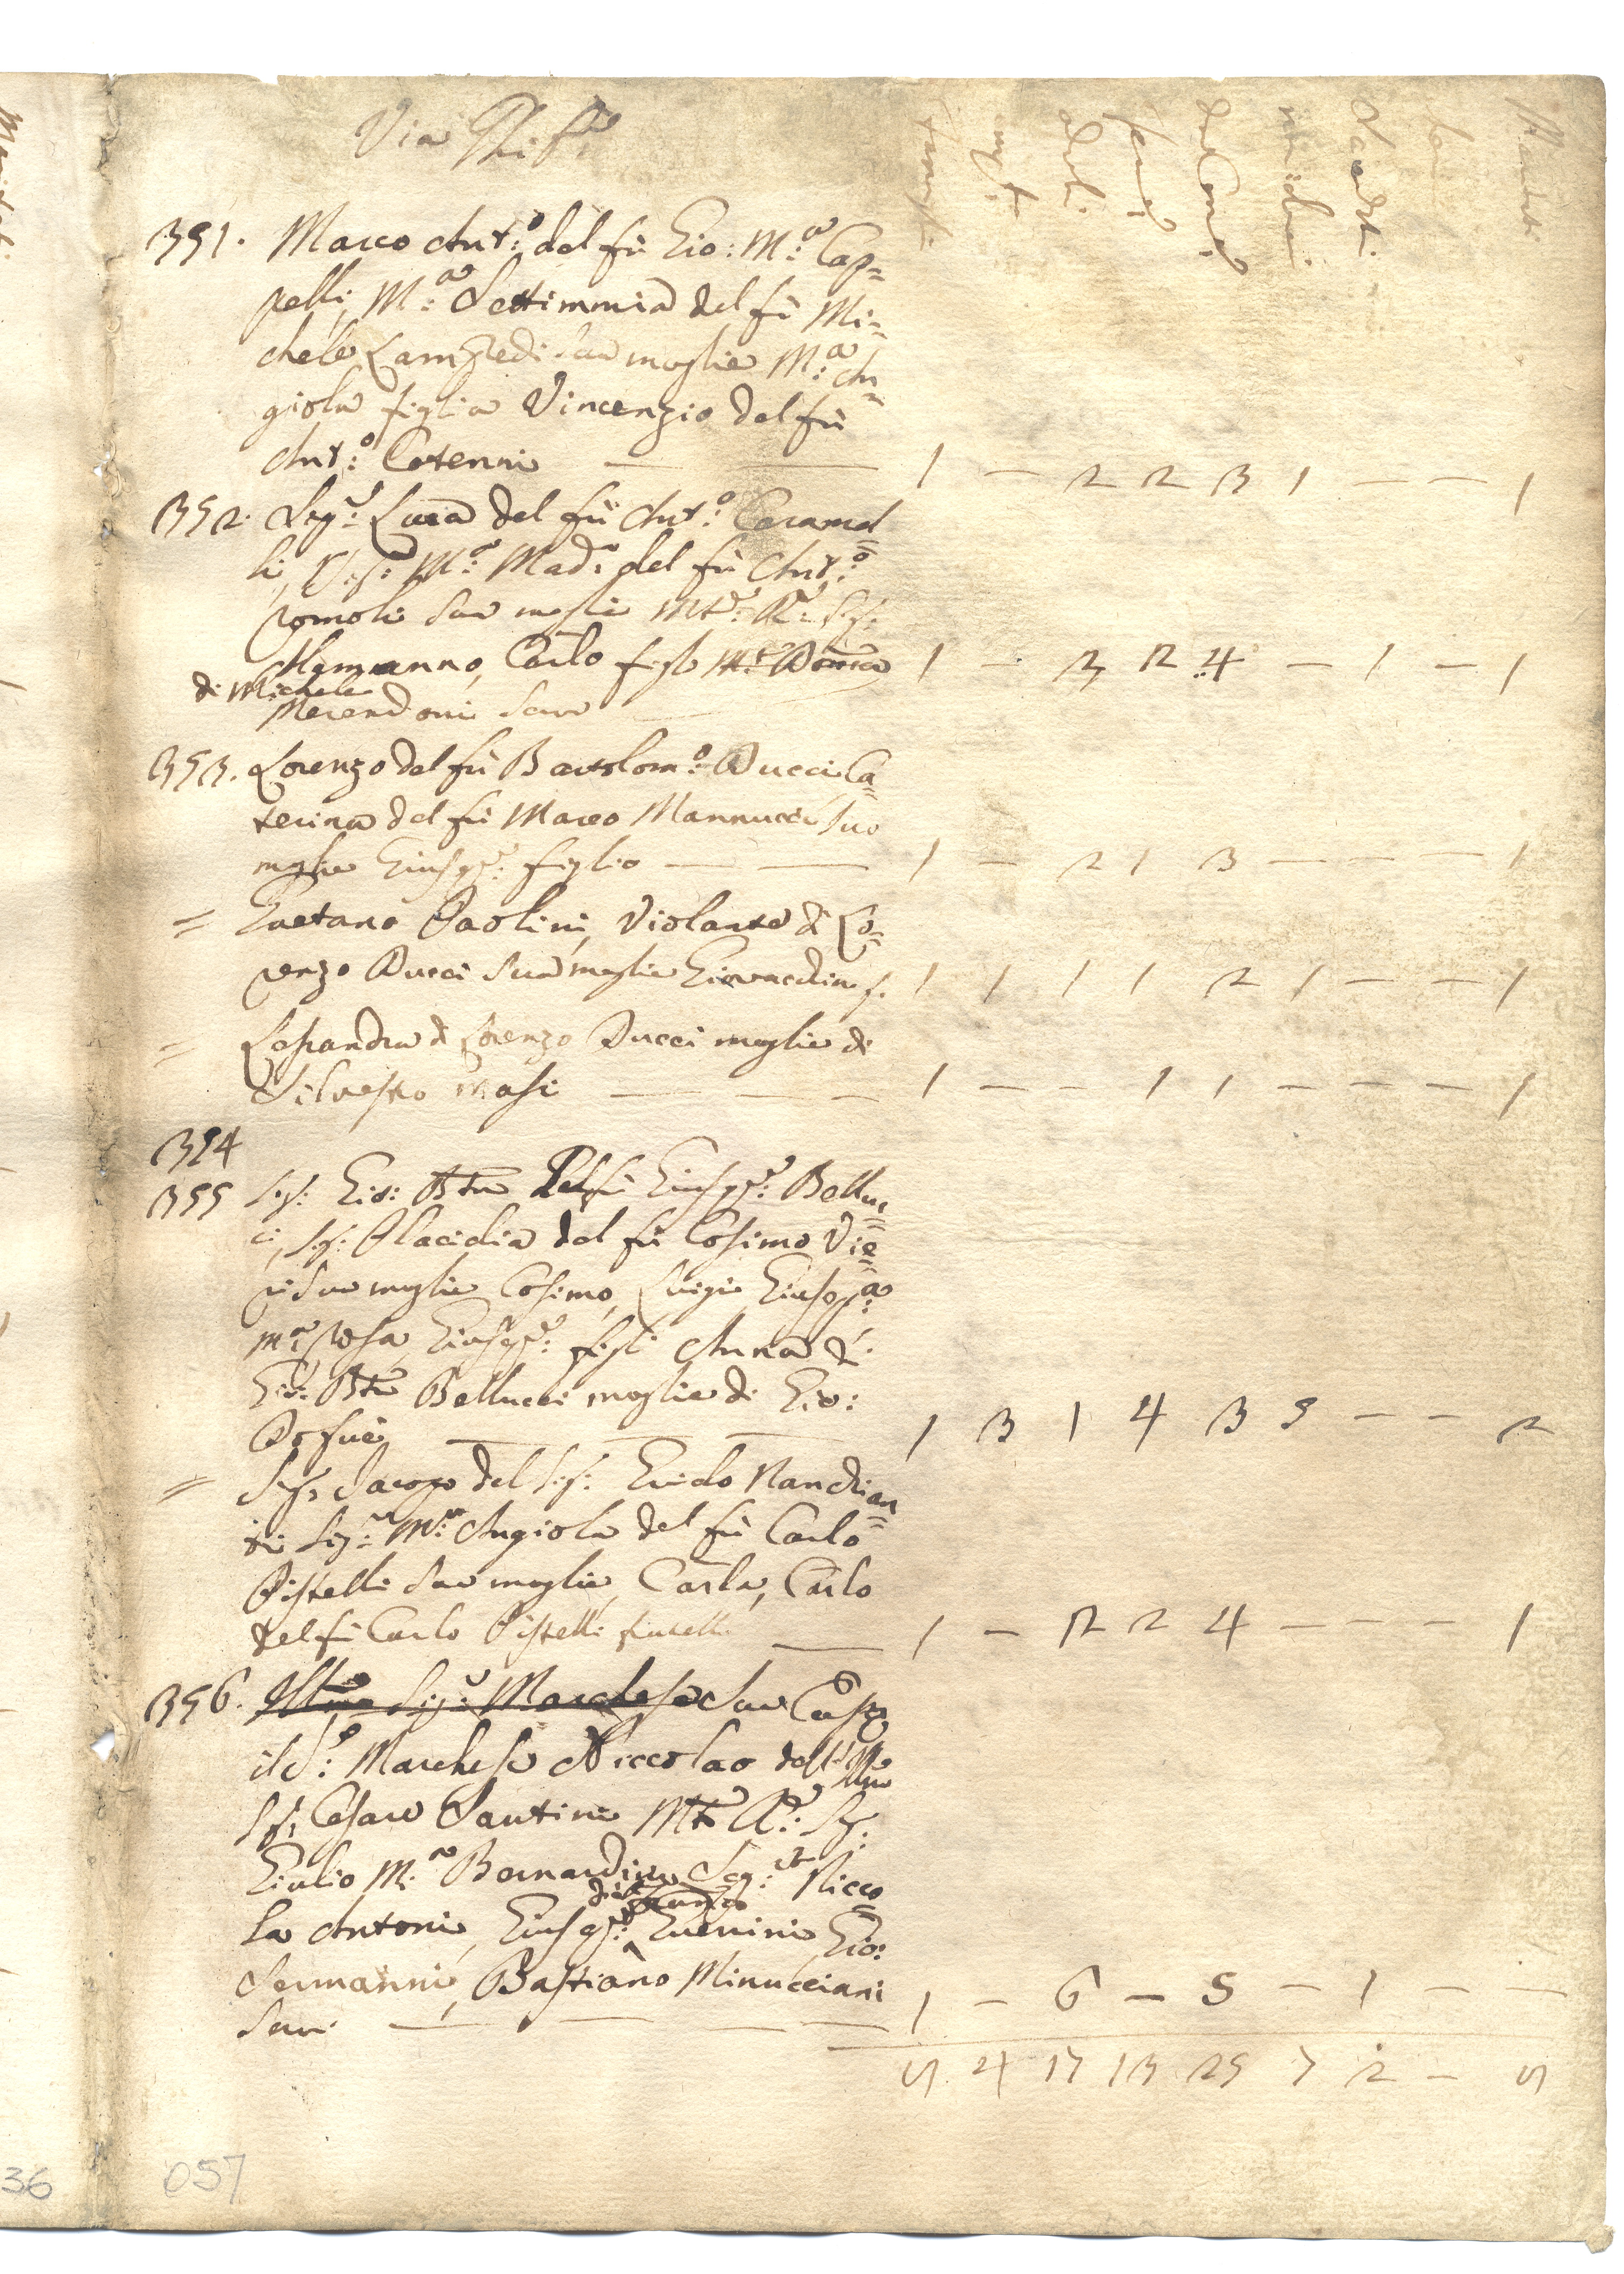 Via Ghib:
famigl:
mas:
adt:
fem:
da Com:
non
Sacdti:
Mariti:
351. Marco Ant:o del fù Gio: M:a Cap=
pelli, M:a Settimmia del fù Mi=
chele Lampredi Sua moglie M:a An=
giola figlia Vincenzio del fù
Ant:o Cotenni — — 1 – 2 2 3 1 – – 1
352. Sig:r Luca del fù Ant:o Caramel
li, Sig: M:a Mad: del fù Ant:o
romoli Sua moglie
Carlo 1 – 3 2 4 – 1 – 1
di Michele
Merendoni Serv
353. Lorenzo del fù Bartolom:o Ducci Ca=
terina del fù Marco Mannucci Sua
moglie Giusep:e figlio — — 1 – 2 1 3 – – – 1
= Gaetano Paolini, Violante di Lo=
renzo Ducci Sua moglie Giovacchin f. 1 1 1 1 2 1 – – 1
= Lesandra di Lorenzo Ducci moglie di
Silvestro Masi — — – 1 – – 1 1 – – – 1
354
355 Sig: Gio: Bta Del fù Giusep:e Belluc
ci, Sig: Placidia del fù Cosimo Vie=
ri Sua moglie Cosimo, Luigi Giusep:a
M:a Rosa, Giusep:e figli Anna di
Gio: Bta Bellucci moglie di Gio:
— — — 1 3 1 4 3 5 – – 2
= Sig: Jacopo del Sig: Guido Nandian
ti Sig:a M:a Angiola del fù Carlo
Pistelli Sua moglie, Carla, Carlo
del fù Carlo Pistelli fratelli — 1 – 2 2 4 – – – 1
356. Illmo Sig:r Marchese Sua Casa
il S:r Marchese Niccolao dell' Illmo
Sig: Cesare Santini
Giulio M:a Bernardino Seg:to Nicco
la Antoni, Giusep:e Guerrini Gio:
Sermanni, Bastiano Minucciani
Servi — — — — 1 – 6 – 5 – 1 – –
9 4 17 13 25 7 2 – 9
36
057